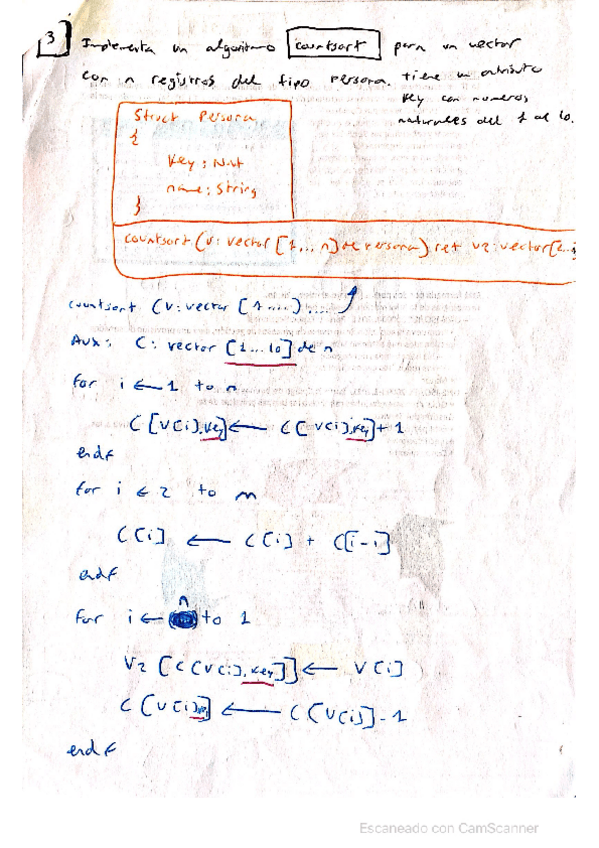 3 Implementa un algoritmo countsort para un vector
con n registros del tipo persona. tiene un atributo
key con numeros
naturales del 1 al 10.
Struct Persona
{
key : Nat
name : String
}
countsort (v: vector [1,... n] de persona) ret v2: vector[1..
countsort (v: vector [1 ....) ....
Aux: C: vector [1...10] de n
for i ← 1 to n
C [v(i).key] ← C [v(i).key] + 1
endf
for i ← 2 to m
C(i] ← C(i] + C[i-i]
endf
for i ← n to 1
V2 [C (v(i).key]] ← V[i]
C [v(i).key] ← C (v(i)] - 1
endf
Escaneado con CamScanner